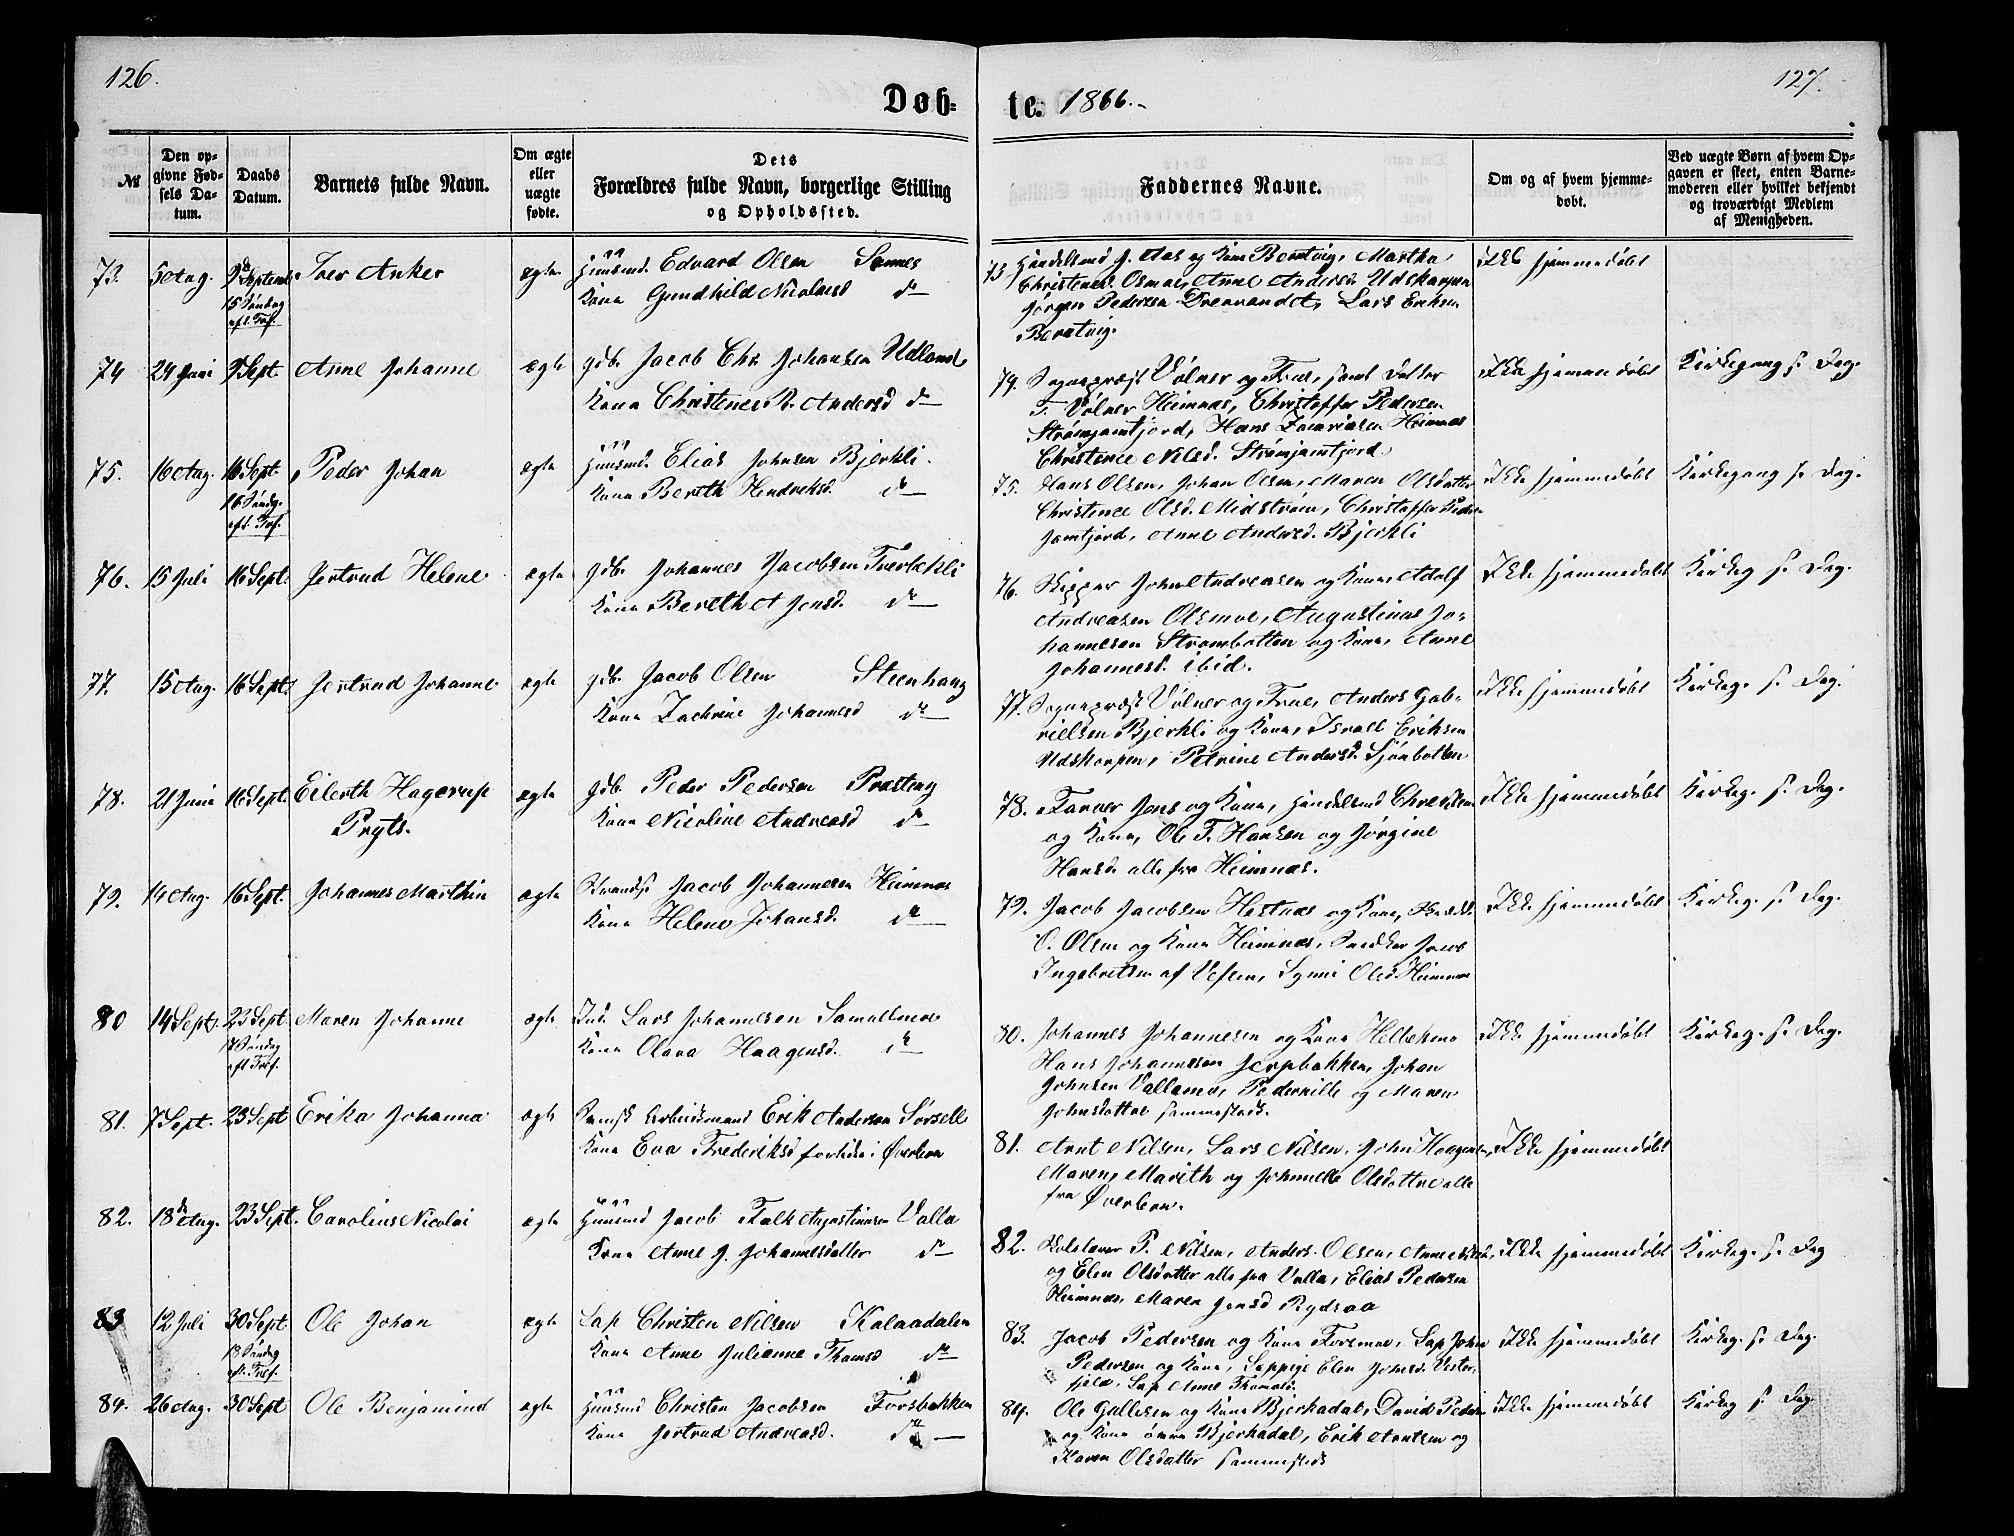 126.
127.
Døb-
te. 1866.
№
Den op-
givne Fød-
sels Da-
tum.
Daabs
Datum.
Barnets fulde Navn.
Om ægte
eller
uægte
fødte.
Dets
Forældres fulde Navn, borgerlige Stilling
og Opholdssted.
Faddernes Navne.
Om og af hvem hjemme-
døbt.
Ved uægte Børn af hvem Op-
gaven er skeet, enten Barne-
moderen eller hvilket bekjendt
og troværdigt Medlem
af Menigheden.
73. 5 Aug. 9de Septembr Iver Anker ægte Huusmd. Edvard Olsen Sannes
15 Søndag
eft. Tref.
Kone Gundhild Nicolaisd do
74 24 Juni 9 Sept. Anne Johanne ægte gdb. Jacob Chr. Johansen Udland
Kone Christence B. Andersd do
75. 16 Aug. 16 Sept. Peder Johan ægte Huusmd. Elias Johnsen Bjerkli.
16 Søndg.
eft. Tref.
Kone Bereth Hendriksd. do
76. 15 Juli 16 Sept. Jertrud Helene ægte gdb. Johannes Jacobsen Tverlikli
Kone Bereth A Jensd. do
77. 15 Aug. 16 Sept. Jertrud Johanne ægte gdb. Jacob Olsen Steenhaug
Kone Zachrine Johannesd do
78. 21 Juni 16 Sept. Eilerth Hagerup
Pryts.
ægte gdb. Peder Pedersen Præsteng
Kone Nicoline Andreasd do
79. 14 Aug. 16 Sept. Johannes Marthin ægte Strands. Jacob Johannesen Hemnæs
Kone Helene Johansd. do
80 14 Sept. 23 Sept. Maren Johanne ægte Ind. Lars Johannesen
17 Søndag
eft Tref.
Kone Olava Haagensd. do
81. 7 Sept. 23 Sept Erika Johanna ægte Svensk Arbeidsmand Erik Andersen Sorsele
Kone Eva Frederiksd for tiden i Øverleren
82. 18de Aug. 23 Sept. Carolius Nicolai ægte Huusmd Jacob Falk Augustinsen Valla
Kone Anne J. Johannesdatter do
83 12 Juli 30 Sept Ole Johan ægte Lap Christen Nilsen Kalaadalen
18 Søndag
eft. Tref.
Kone Anne Julianne Thomasd do
84. 26 Aug. 30 Sept Ole Benjamind ægte Huusmd Christen Jacobsen Forsbakken
Kone Jertrud Andreasd. do
73 Handelsmd J. Aas og Kone Martha
Christensd. Osmoe, Anne Andersd. Udskarpen
Jørgen Pedersen Lars Eriksen
Ikke hjemmedøbt
74. Sognepræst Vølner og Frue, samt Datter
F. Vølner Hemnæs, Christoffer Pedersen
Strømjamtjord, Hans Zacariasen Hemnæs
Christence Nilsd. Strømjamtjord.
Ikke hjemmedøbt Kirkegang s. Dag.
75. Hans Olsen, Johan Olsen, Maren Olsdatter
Christence Olsd. Midstrøm, Christoffer Peders
Jamtjord, Anne Andersd. Bjerkli
Ikke hjemmedøbt Kirkegang s. Dag.
76. Skipper John Andreasen og Kone, Adolf
Andreasen Osmoe, Augustinus Jo-
hannesen Strømbotten og Kone, Anne
Johannesd. ibid.
Ikke hjemmedøbt Kirkeg s. Dag.
77. Sognepræst Vølner og Frue, Anders Gab-
rielsen Bjerkli og Kone, Israel Eriksen
Udskarpen, Petrine Andersd. Sjønbotten
Ikke hjemmedøbt Kirkeg. s. Dag.
78. Farver Jens og Kone, Handelsmd Christensen
og Kone, Ole T. Hansen og Jørgine
Hansd. alle fra Hemnæs.
Ikke hjemmedøbt Kirkeg. s. Dag.
79. Jacob Jacobsen Hestnæs og Kone,
O. Olsen og Kone Hemnæs, Snedker Jacob
Ingebretsen af Vefsen, Synni Olsd. Hemnæs
Ikke hjemmedøbt Kirkeg. s. Dag.
80. Johannes Johannesen og Kone Hellesmo
Hans Johannesen Jerpbakken, Johan
Johnsen Vallamo, Pedernille og Maren
Johnsdøttre sammesteds.
Ikke hjemmedøbt Kirkeg. s. Dag.
81. Arnt Nilsen, Lars Nilsen, John Haagensen,
Maren, Marith og Johnelle Olsdøttre alle
fra Øverleren.
Ikke hjemmedøbt
82. P. Nilsen, Anders Olsen, Anne
og Elen Olsdatter alle fra Valla, Elias Pedersen
Hemnæs, Maren Jensd Rydsaa
Ikke hjemmedøbt Kirkeg. s. Dag
83. Jacob Pedersen og Kone Forsmoe, Lap John
Pedersen og Kone, Lappige Elen Johnsd. Vester-
fjeld, Lap Anne Thomasd.
Ikke hjemmedøbt Kirkeg. s. Dag.
84. Ole Gullesen og Kone Bjerkadal, David Peders
og Kone Bjerkadal, Erik Arntsen og
Karen Olsdatter sammesteds
Ikke hjemmedøbt Kirkeg s. Dag.